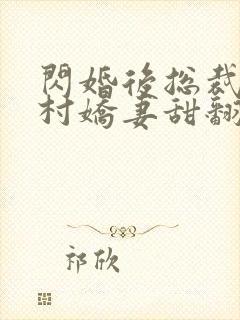 閃婚後總裁
村嬌妻甜翻
祁欣